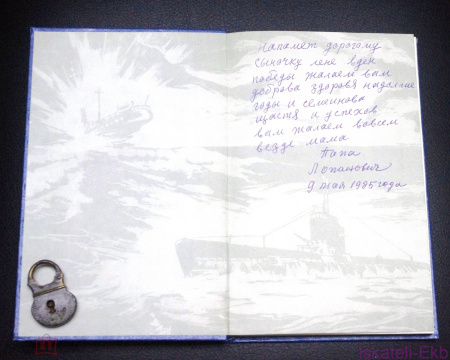 Напамет дорогому
сыночку лене вден
победы жалаем вам
доброва здоровя надалгие
годы и семинова
щастя и успехов
вам жалаем вовсем
везде мама
Папа
Лопанович
9 мая 1985 года